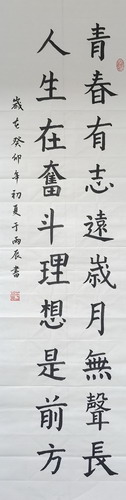 青春有志遠歲月無聲長
人生在奮斗理想是前方
歲在癸卯年初夏于丙辰書